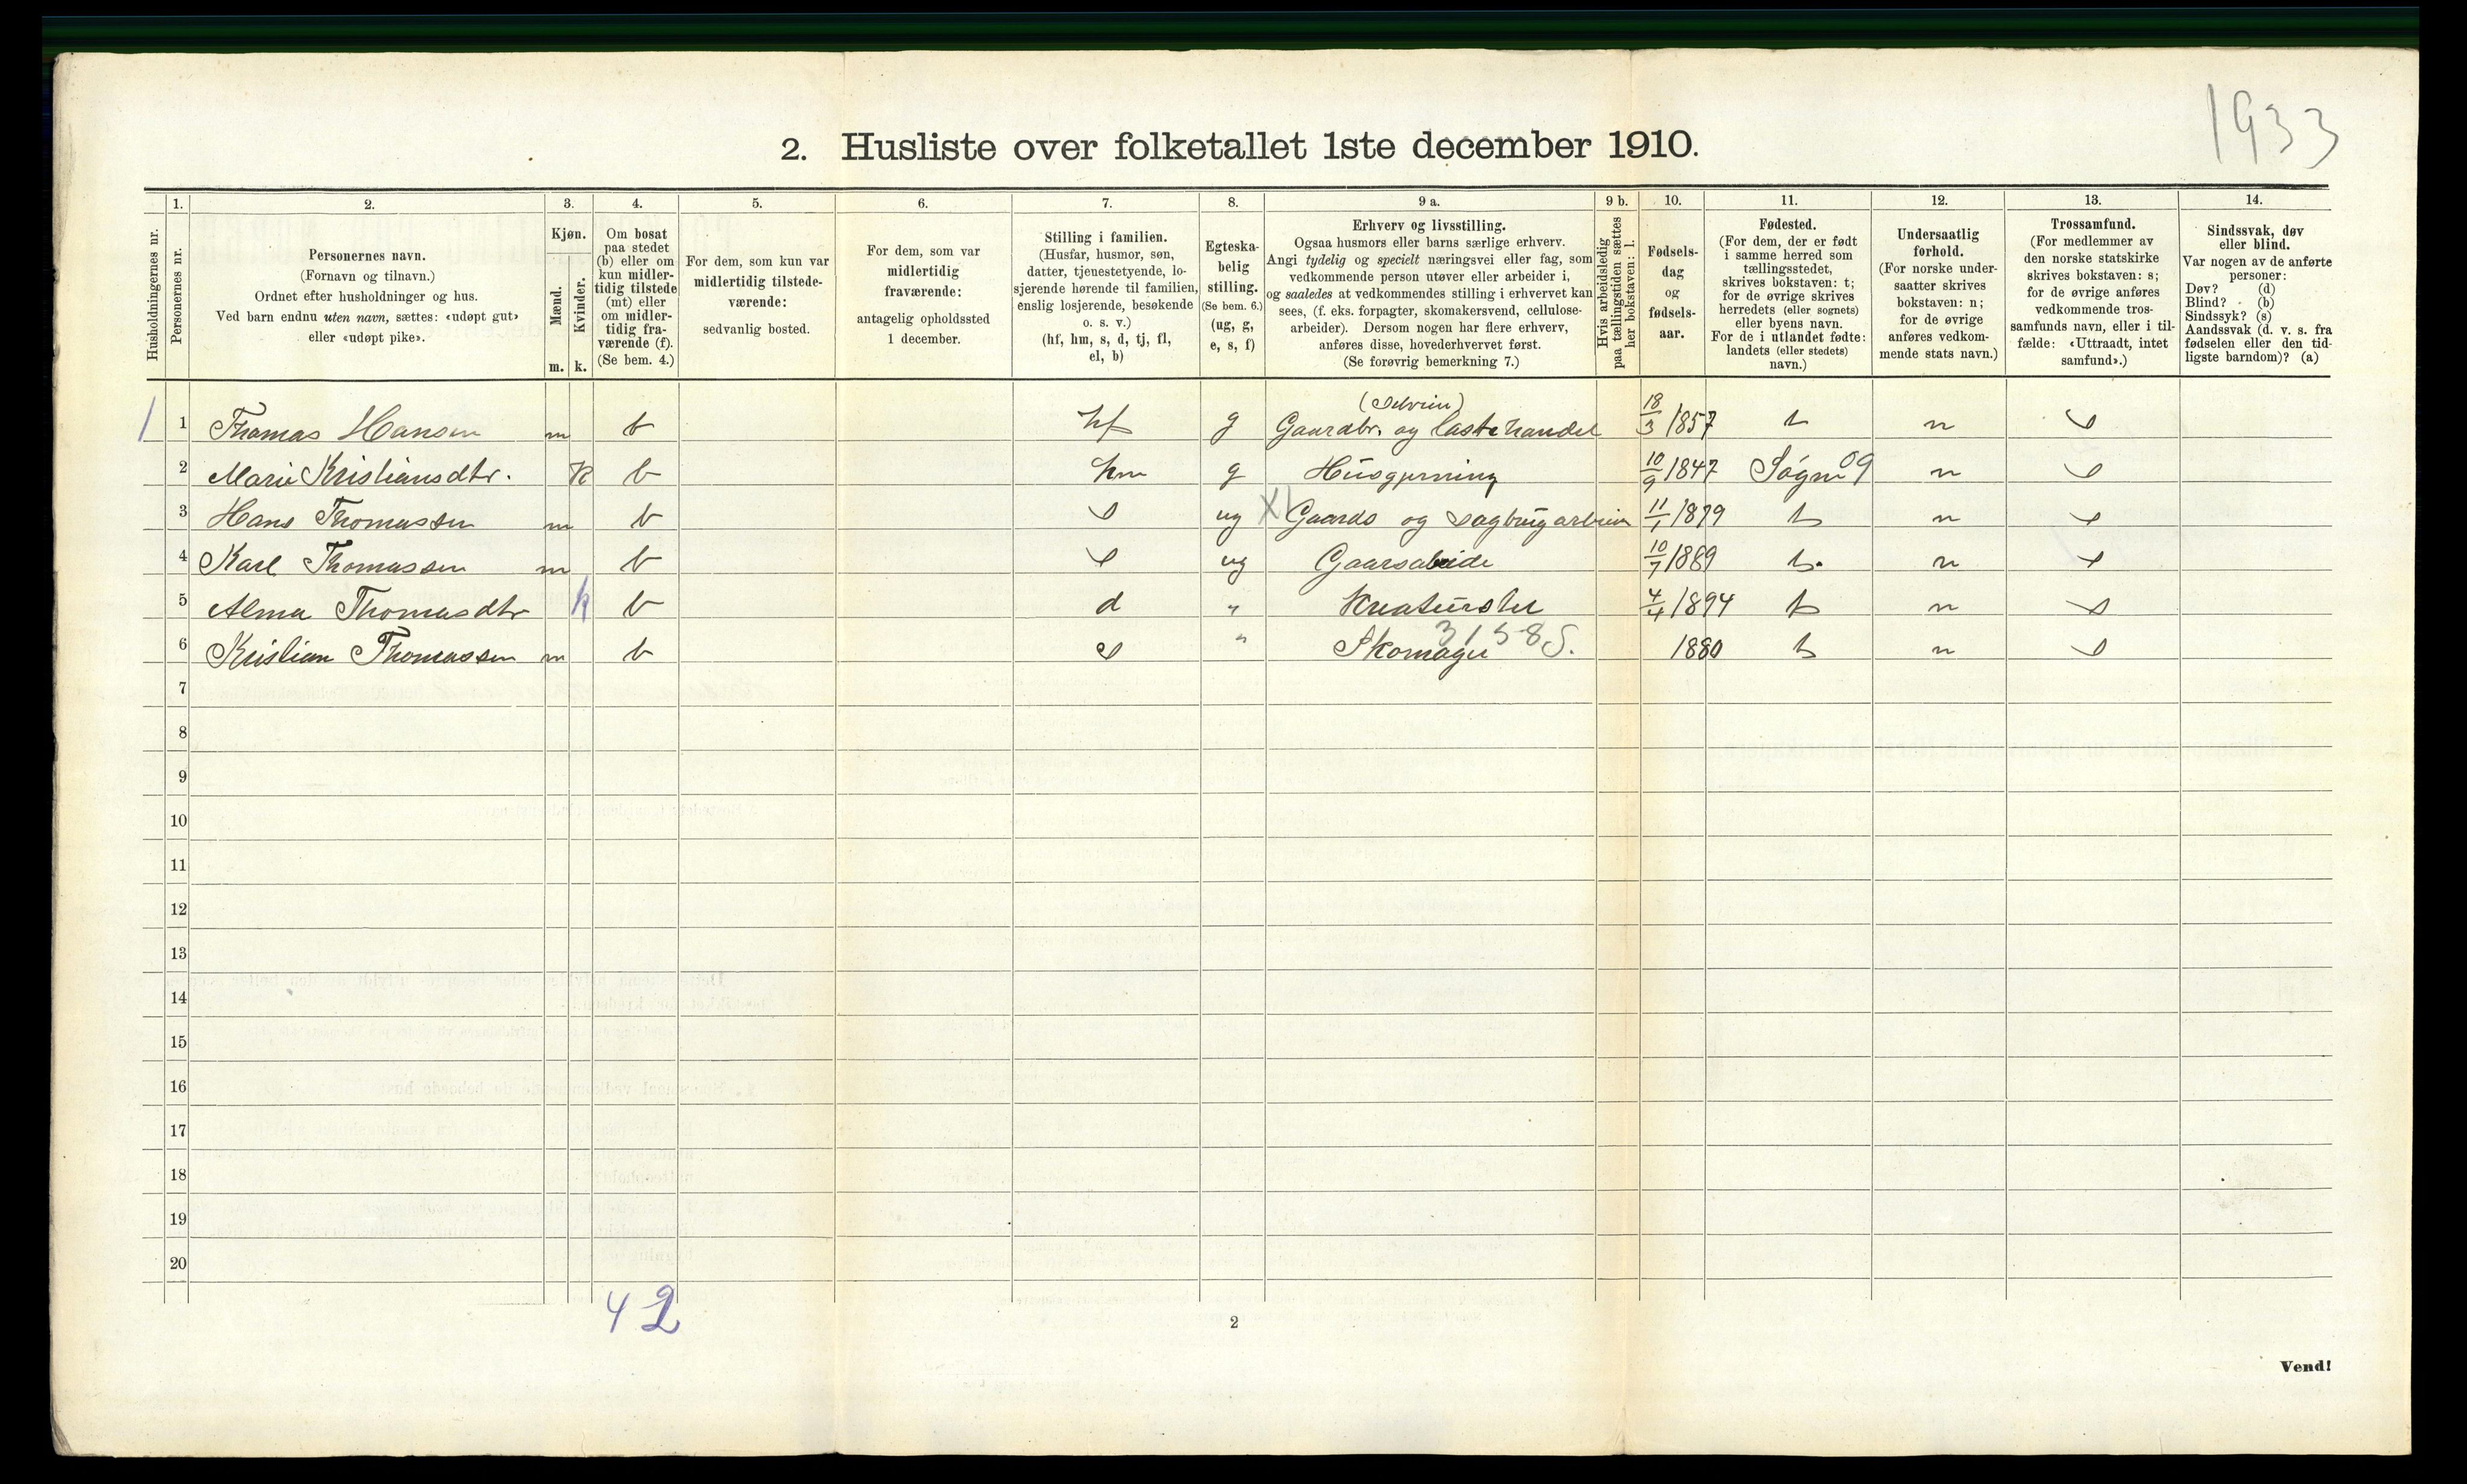 1933
2. Husliste over folketallet 1ste december 1910.
1. 2. 3. 4. 5. 6. 7. 8. 9 a. 9 b. 10. 11. 12. 13. 14.
Husholdningernes nr.
Personernes nr.
Personernes navn.
(Fornavn og tilnavn.)
Ordnet efter husholdninger og hus.
Ved barn endnu uten navn, sættes: «udøpt gut»
eller «udøpt pike».
Kjøn.
Mænd.
Kvinder.
m. k.
Om bosat
paa stedet
(b) eller om
kun midler-
tidig tilstede
(mt) eller
om midler-
tidig fra-
værende (f).
(Se bem. 4.)
For dem, som kun var
midlertidig tilstede-
værende:
sedvanlig bosted.
For dem, som var
midlertidig
fraværende:
antagelig opholdssted
1 december.
Stilling i familien.
(Husfar, husmor, søn,
datter, tjenestetyende, lo-
sjerende hørende til familien,
enslig losjerende, besøkende
o. s. v.)
(hf, hm, s, d, tj, fl,
el, b)
Egteska-
belig
stilling.
(Se bem. 6.)
(ug, g,
e, s, f)
Erhverv og livsstilling.
Ogsaa husmors eller barns særlige erhverv.
Angi tydelig og specielt næringsvei eller fag, som
vedkommende person utøver eller arbeider i,
og saaledes at vedkommendes stilling i erhvervet kan
sees, (f. eks. forpagter, skomakersvend, cellulose-
arbeider). Dersom nogen har flere erhverv,
anføres disse, hovederhvervet først.
(Se forøvrig bemerkning 7.)
Hvis arbeidsledig
paa tællingstiden sættes
her bokstaven: l.
Fødsels-
dag
og
fødsels-
aar.
Fødested.
(For dem, der er født
i samme herred som
tællingsstedet,
skrives bokstaven: t;
for de øvrige skrives
herredets (eller sognets)
eller byens navn.
For de i utlandet fødte:
landets (eller stedets)
navn.)
Undersaatlig
forhold.
(For norske under-
saatter skrives
bokstaven: n;
for de øvrige
anføres vedkom-
mende stats navn.)
Trossamfund.
(For medlemmer av
den norske statskirke
skrives bokstaven: s;
for de øvrige anføres
vedkommende tros-
samfunds navn, eller i til-
fælde: «Uttraadt, intet
samfund».)
Sindssvak, døv
eller blind.
Var nogen av de anførte
personer:
Døv? (d)
Blind? (b)
Sindssyk? (s)
Aandssvak (d. v. s. fra
fødselen eller den tid-
ligste barndom)? (a)
1 1 Thomas Hansen m b hf g Gaardbr. og lastehandel 18/3 1857 t n s
2 Marie Kristiansdtr. k b hm g Husgjerning 10/9 1847 Søgne 09 n s
3 Hans Thomassen m b s ug X Gaards og sagbrugarbeider 11/1 1879 t n s
4 Karl Thomassen m b s ug Gaarsabeide 10/7 1889 t. n s
5 Alma Thomasdtr k b d " Kreaturstel 4/4 1894 t n s
6 Kristian Thomassen m b s " Skomager 3158 S. 1880 t n s
7
8
9
10
11
12
13
14
15
16
17
18
19
20
4 2
2
Vend!